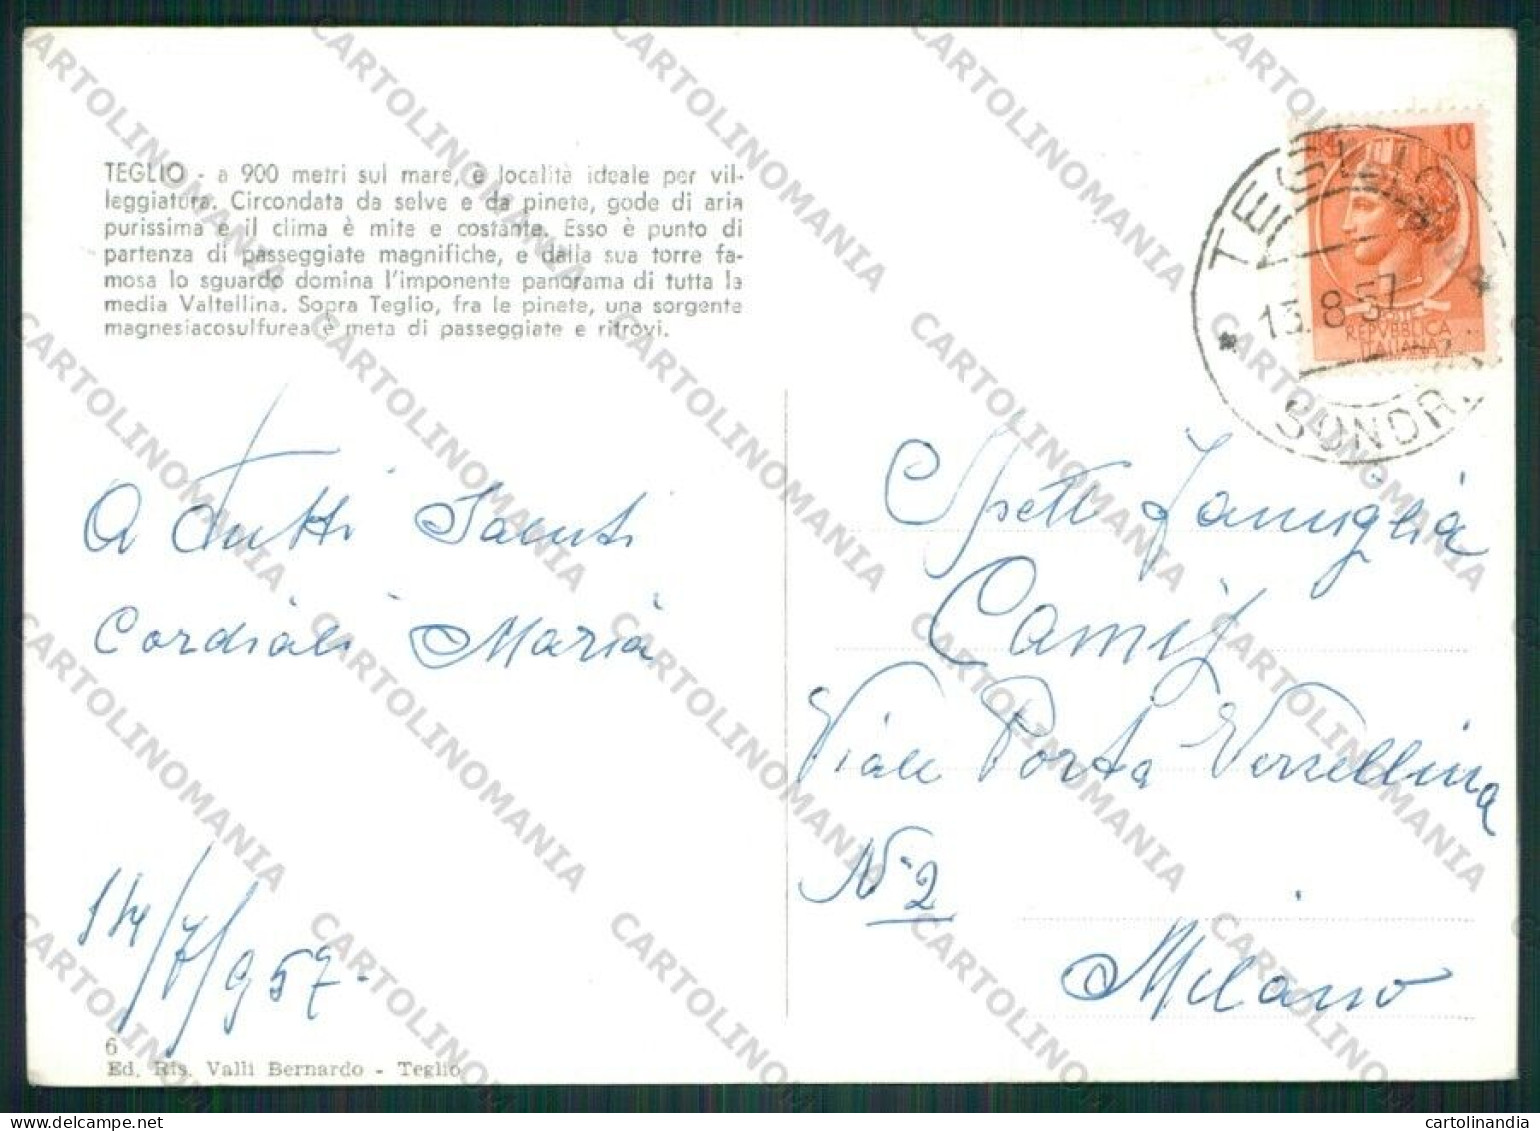 TEGLIO - a 900 metri sul mare, è località ideale per vil-
leggiatura. Circondata da selve e da pinete, gode di aria
purissima e il clima è mite e costante. Esso è punto di
partenza di passeggiate magnifiche, e dalla sua torre fa-
mosa lo sguardo domina l'imponente panorama di tutta la
media Valtellina. Sopra Teglio, fra le pinete, una sorgente
magnesiacosulfurea è meta di passeggiate e ritrovi.
10
REPVBBLICA
ITALIANA
TEGLIO
13.8.57
SONDR
A tutti Saluti
Cordiali Maria
14/7/957-
Spett Famiglia
Viale Porta Vercellina
N° 2
Milano
6
Ed. Ris. Valli Bernardo - Teglio
CARTOLINOMANIA
cartolinandia